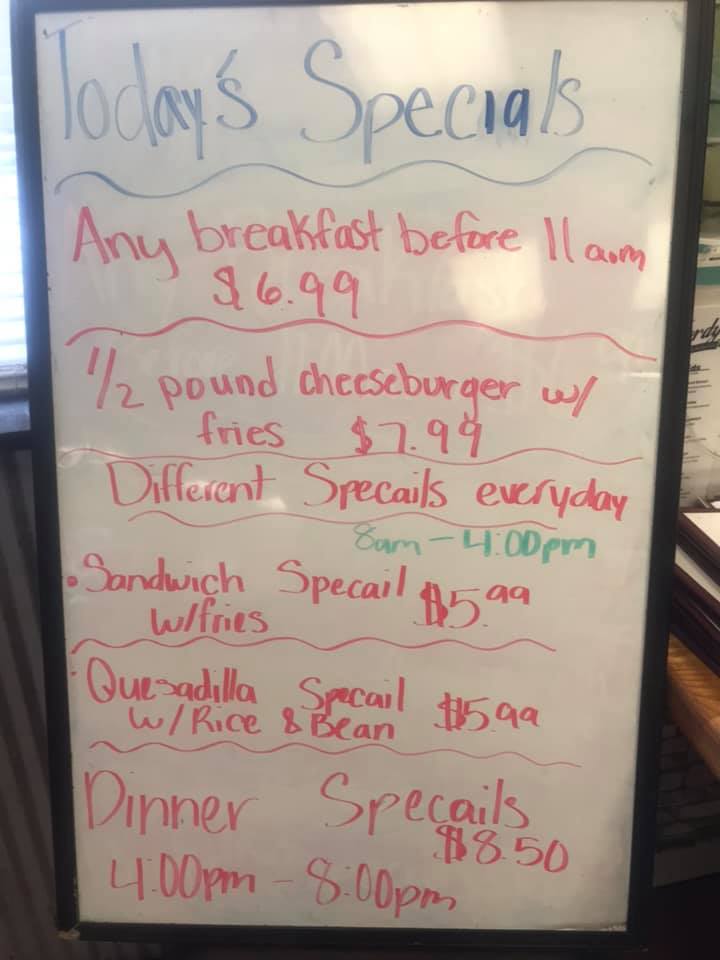 Today's Specials
Any breakfast before 11 a.m
$6.99
1/2 pound cheeseburger w/
fries $7.99
Different Specails everyday
8am - 4:00pm
• Sandwich Specail $5.99
w/fries
• Quesadilla Specail $5.99
w/Rice & Bean
Dinner Specails
$8.50
4:00pm - 8:00pm